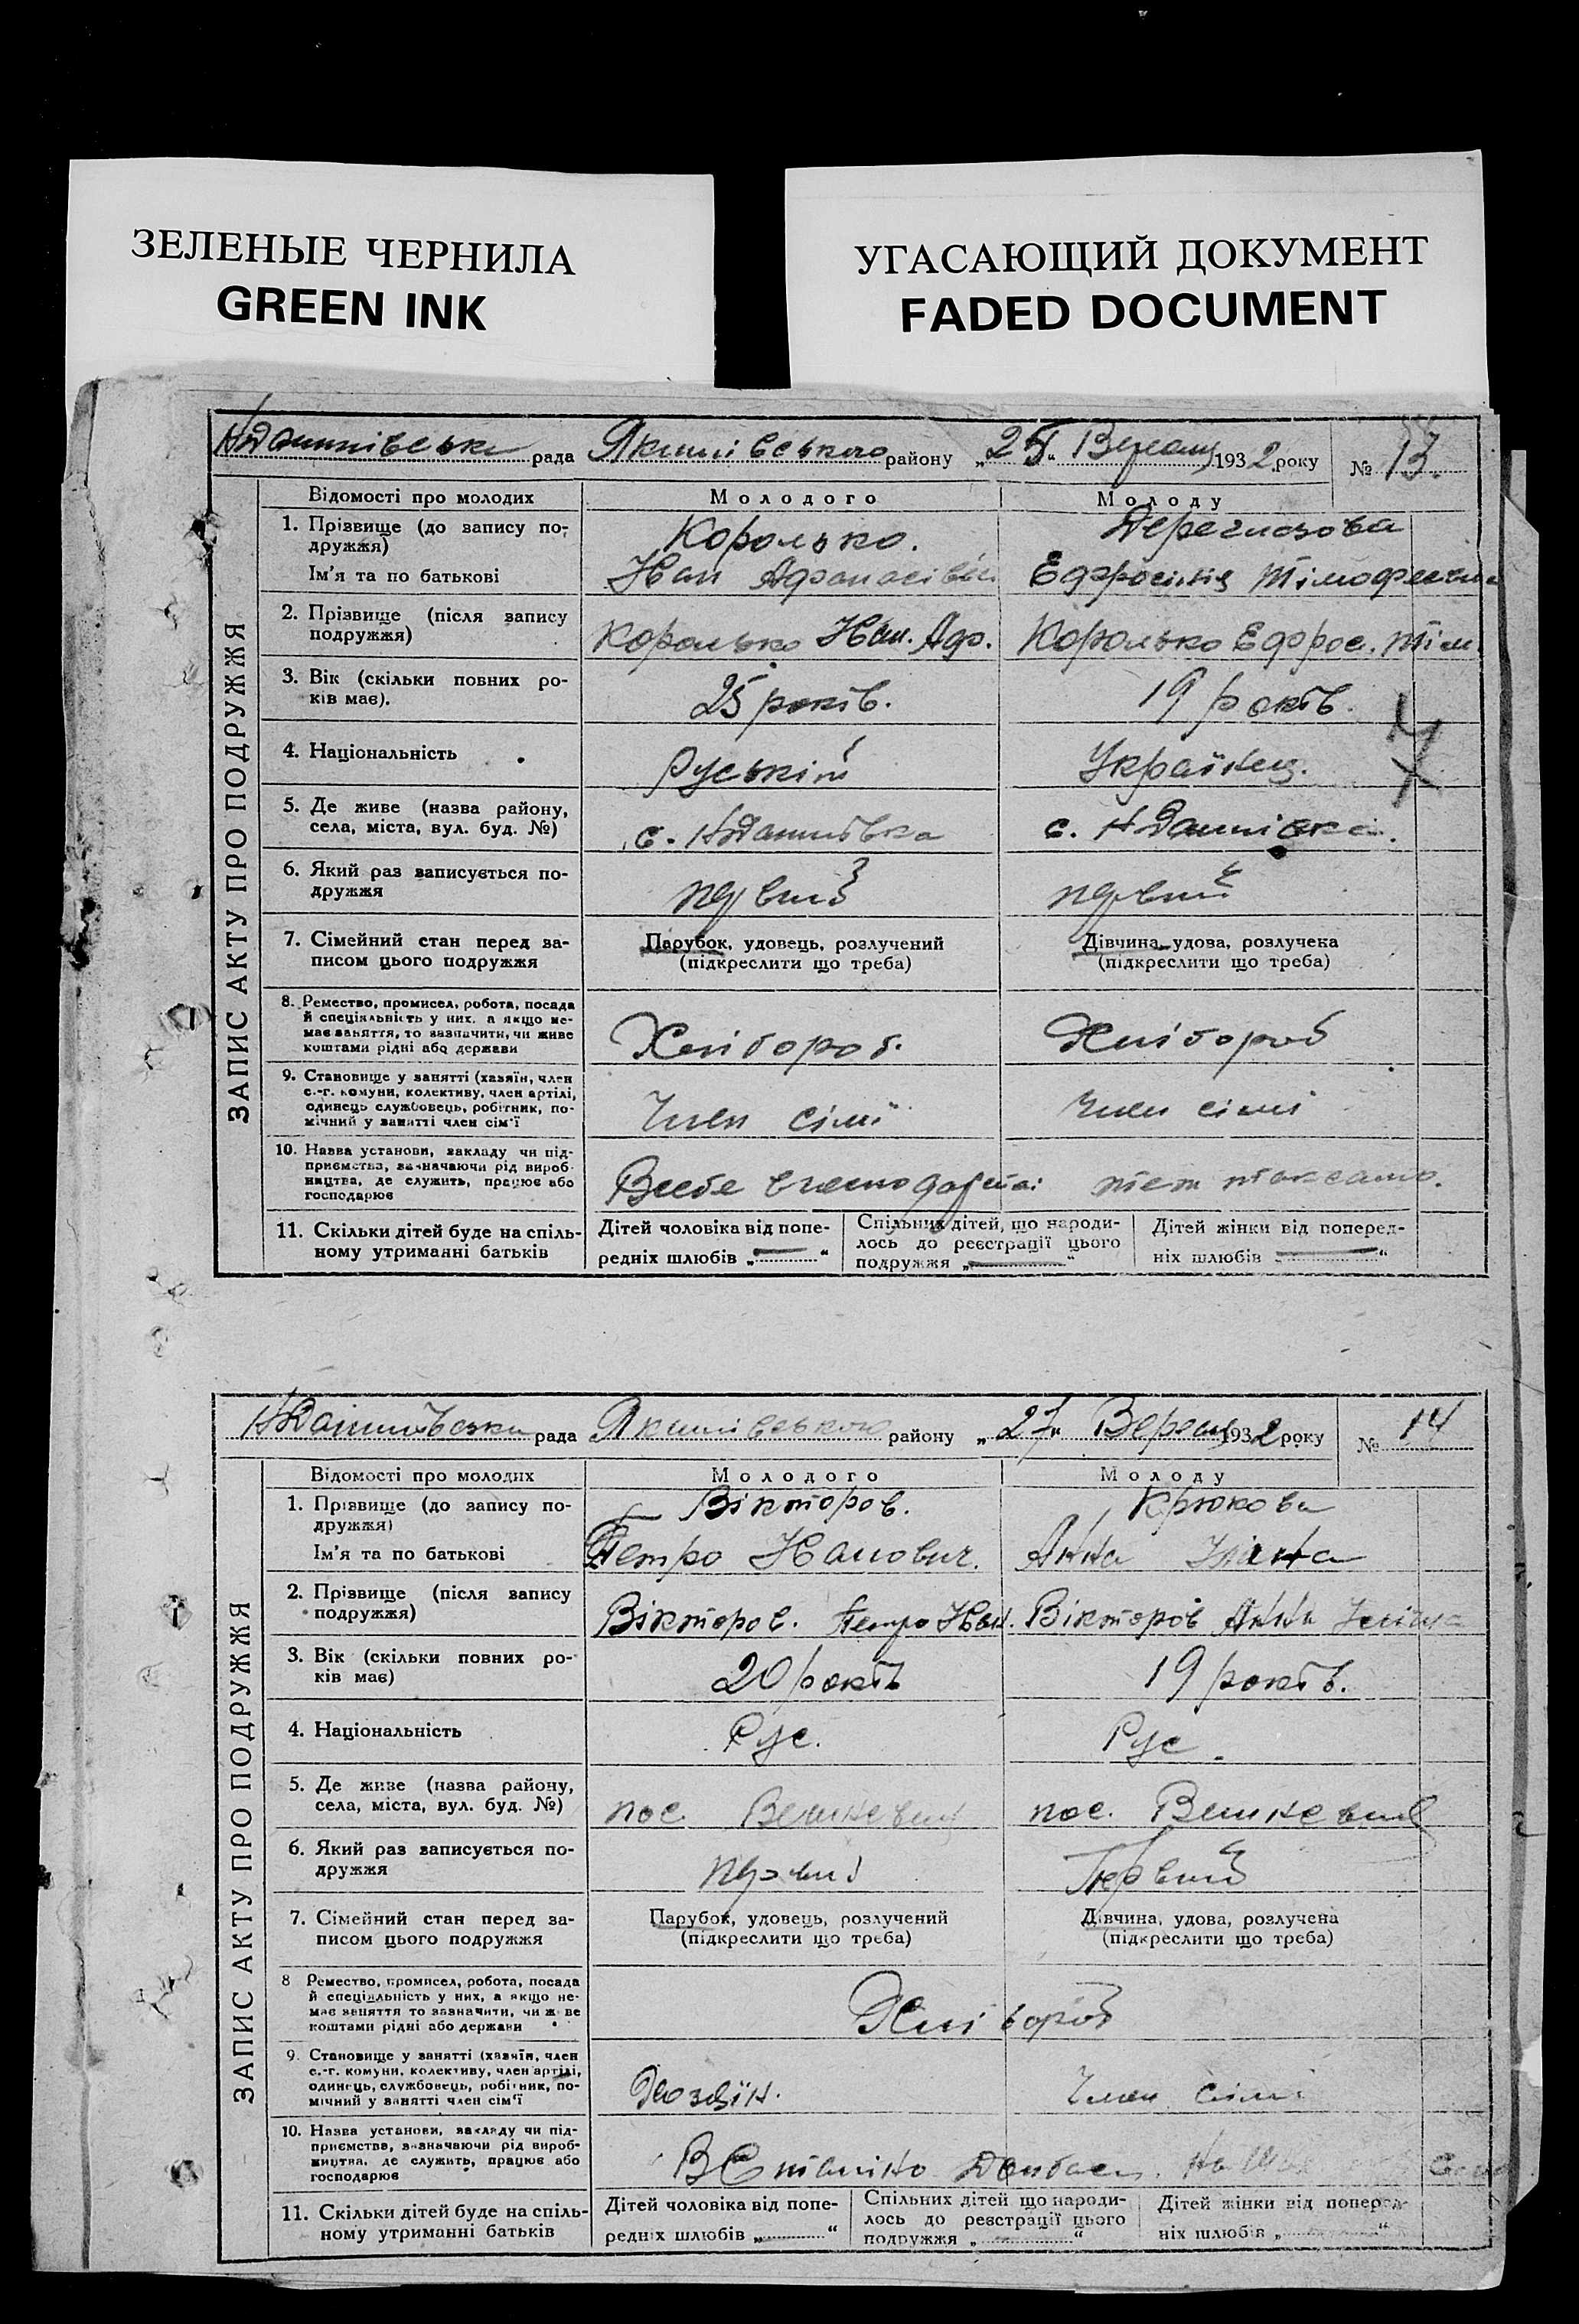 ЗЕЛЕНЫЕ ЧЕРНИЛА
GREEN INK
УГАСАЮЩИЙ ДОКУМЕНТ
FADED DOCUMENT
рада Якимівського району „25“ 1932 року № 13.
ЗАПИС АКТУ ПРО ПОДРУЖЖЯ
Відомості про молодих Молодого Молоду
1. Прізвище (до запису по-
дружжя) Королько.
Ім'я та по батькові Іван Афанасівич Ефросинія Тімофеевна
2. Прізвище (після запису
подружжя) Королько Іван. Аф. Королько Ефрос. Тім.
3. Вік (скільки повних ро-
ків має). 25 років. 19 років.
4. Національність Руський Українц.
5. Де живе (назва району,
села, міста, вул. буд. №) с. с.
6. Який раз записується по-
дружжя первий первий
7. Сімейний стан перед за-
писом цього подружжя
Парубок, удовець, розлучений
(підкреслити що треба)
Дівчина, удова, розлучена
(підкреслити що треба)
8. Ремество, промисел, робота, посада
й спеціяльність у них, а якщо не-
має заняття, то зазначити, чи живе
коштами рідні або держави
Хлібороб. Хлібороб
9. Становище у занятті (хазяїн, член
с.-г. комуни, колективу, член артілі,
одинець службовець, робітник, по-
мічний у занятті член сім'ї
Член сімї Член сімі
10. Назва установи, закладу чи під-
приємства, зазначаючи рід вироб-
ництва, де служить, працює або
господарює
11. Скільки дітей буде на спіль-
ному утриманні батьків
Дітей чоловіка від попе-
редніх шлюбів „—“
Спільних дітей, що народи-
лось до реєстрації цього
подружжя „—“
Дітей жінки від поперед-
ніх шлюбів „—“
рада Якимівського району „27“ 1932 року № 14
ЗАПИС АКТУ ПРО ПОДРУЖЖЯ
Відомості про молодих Молодого Молоду
1. Прізвище (до запису по-
дружжя) Вікторов. Крюкова
Ім'я та по батькові Петро Іванович. Анна
2. Прізвище (після запису
подружжя) Вікторов. Петро Іван. Вікторов Анна
3. Вік (скільки повних ро-
ків має) 20 років 19 років.
4. Національність Рус. Рус.
5. Де живе (назва району,
села, міста, вул. буд. №) пос. пос.
6. Який раз записується по-
дружжя первий Первий
7. Сімейний стан перед за-
писом цього подружжя
Парубок, удовець, розлучений
(підкреслити що треба)
Дівчина, удова, розлучена
(підкреслити що треба)
8 Ремество, промисел, робота, посада
й спеціяльність у них, а якщо не-
має заняття то зазначити, чи живе
коштами рідні або держави
Хлібороб
9. Становище у занятті (хазяїн, член
с.-г. комуни, колективу, член артілі,
одинець, службовець, робітник, по-
мічний у занятті член сім'ї
Хозяїн. Член сімі
10. Назва установи, закладу чи під-
приємства, зазначаючи рід вироб-
ництва, де служить, працює або
господарює
11. Скільки дітей буде на спіль-
ному утриманні батьків
Дітей чоловіка від попе-
редніх шлюбів „“
Спільних дітей що народи-
лось до реєстрації цього
подружжя „“
Дітей жінки від поперед-
ніх шлюбів „“